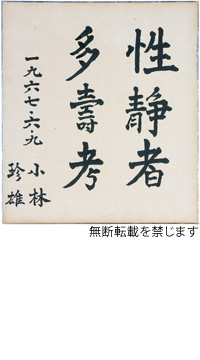 性靜者
多壽考
一九六七・六・九
小林
珍雄
無断転載を禁じます